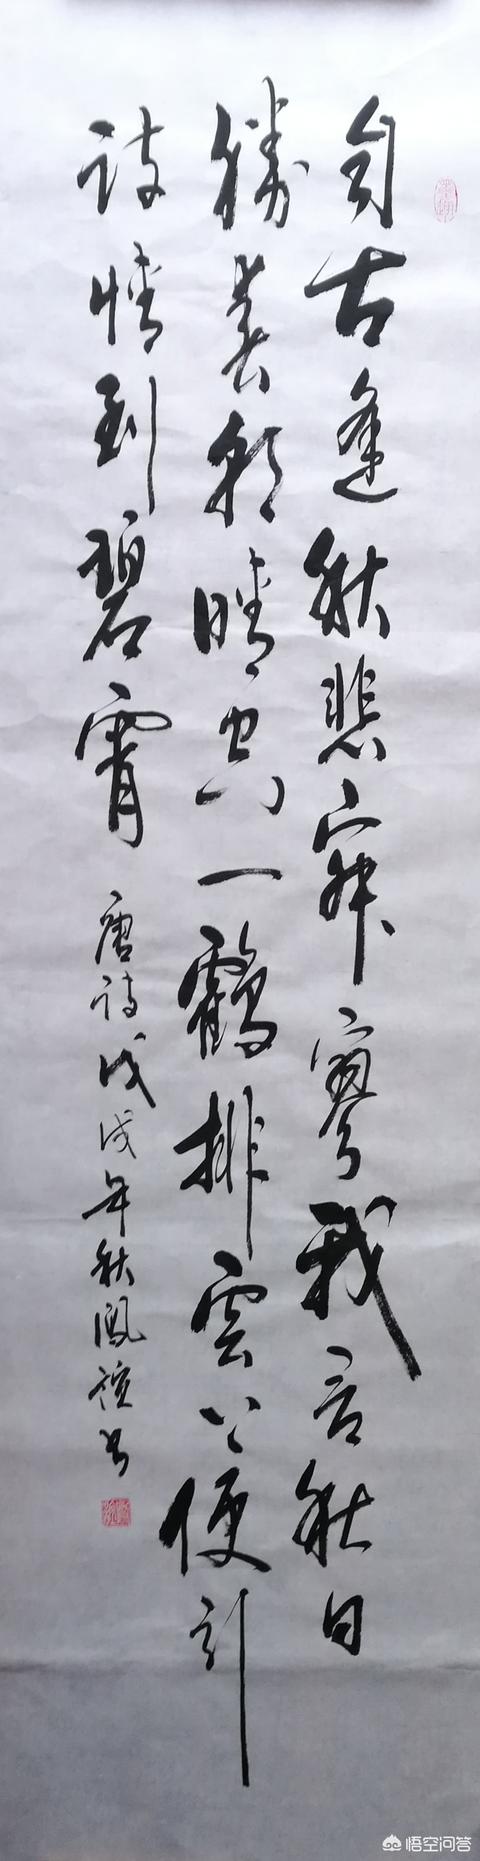 自古逢秋悲寂寥我言秋日
勝春朝晴空一鶴排雲上便引
詩情到碧霄 唐詩戊戌年秋鳳書
悟空问答